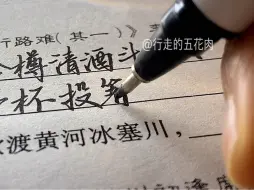 行路难(其一)》
金樽清酒斗
杯投箸
@行走的五花肉
渡黄河冰塞川,